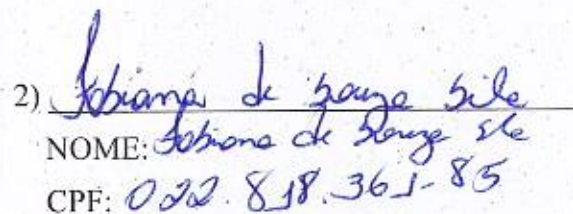 2) Fabiana de Souza Silva
NOME: Fabiana de Souza Silva
CPF: 022.818.361-85